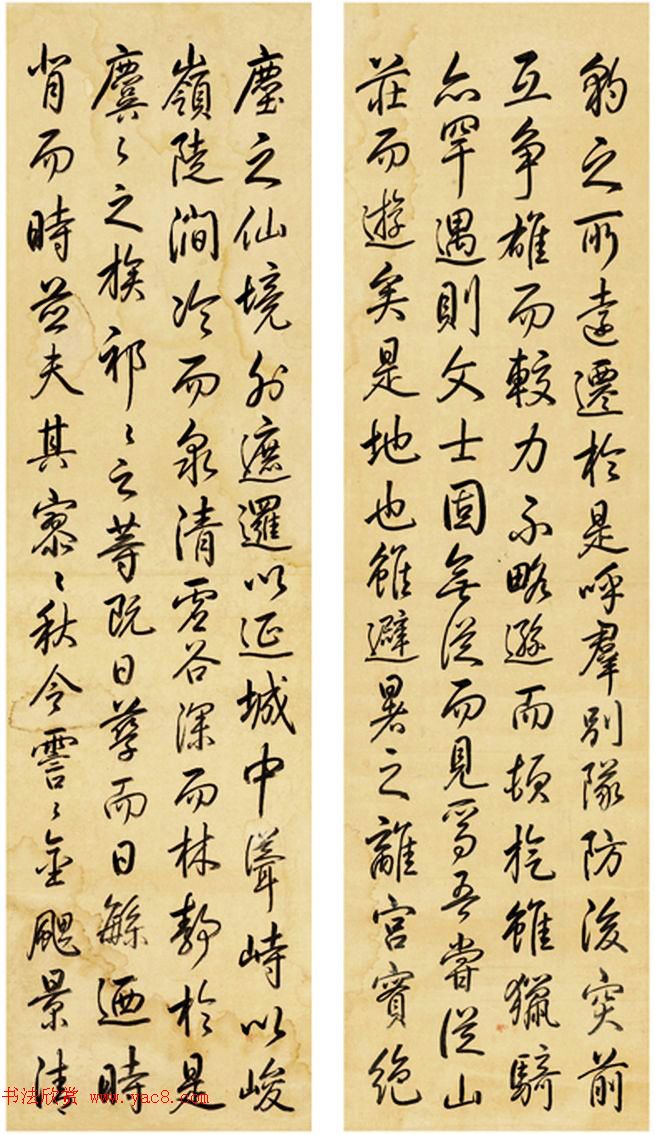 豹之所遠遷於是呼羣別隊防後突前
互爭雄而較力不略遜而頓拕雖獵騎
亦罕遇則文士固無從而見焉吾嘗從山
莊而遊矣是地也雖避暑之離宮實絶
塵之仙境外邐以延城中聳峙以峻
嶺陡澗冷而泉清谷深而林靜於是
麌〻之族祁〻之等既日孳而日緐迺時
而時茁夫其寥〻秋令霅〻金颸景清
书法欣赏 www.yac8.com